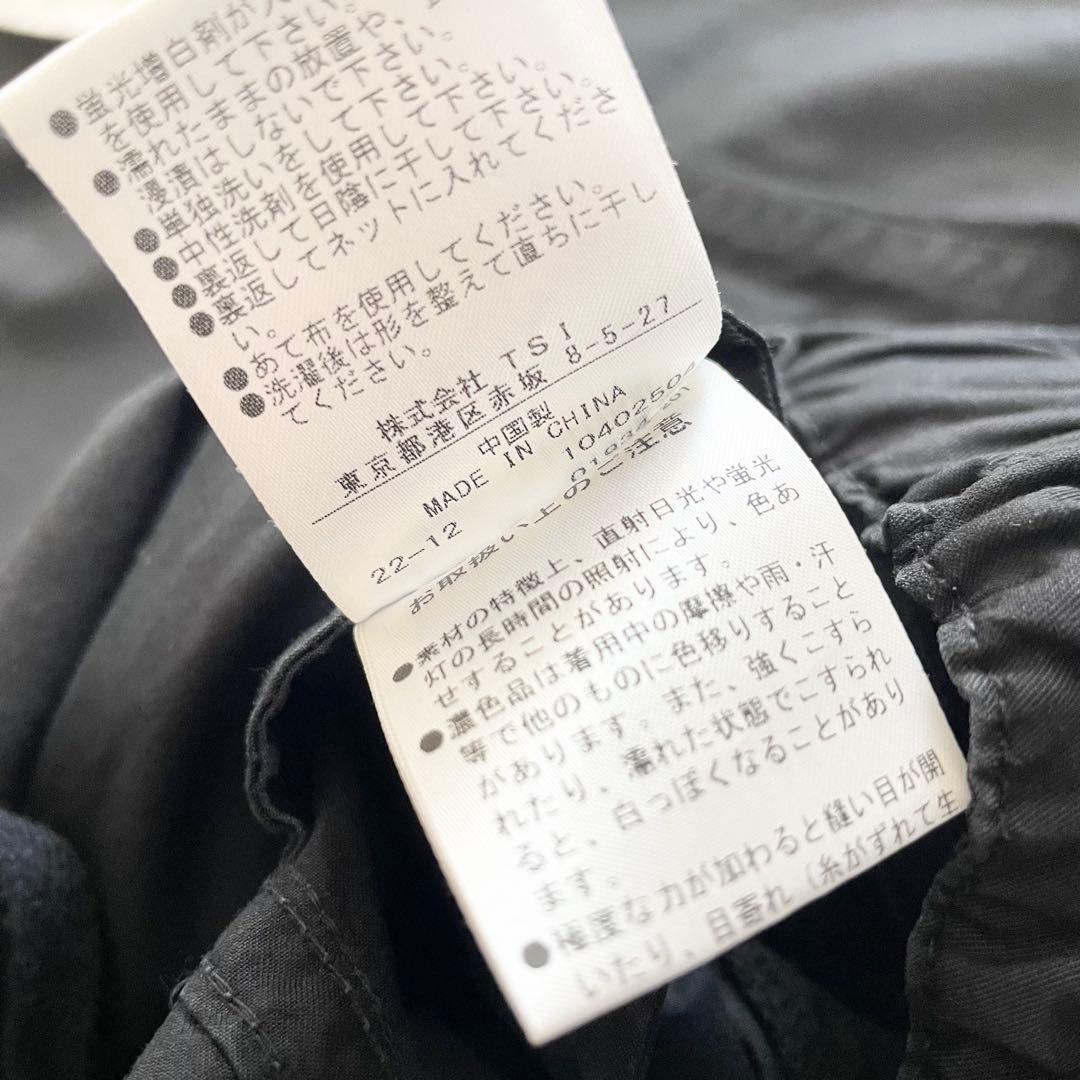 ●蛍光増白剤が入
を使用して下さい。
●濡れたままの放置や、
浸漬はしないで下さい。
●単独洗いをして下さい。
●中性洗剤を使用して下さい。
●裏返して日陰に干して下さい。
●裏返してネットに入れてくださ
い。
●あて布を使用してください。
●洗濯後は形を整えて直ちに干し
てください。
株式会社 TSI
東京都港区赤坂 8-5-27
中国製
MADE IN CHINA
22-12 10402504
お取扱い上のご注意
●素材の特徴上、直射日光や蛍光
灯の長時間の照射により、色あ
せすることがあります。
●濃色品は着用中の摩擦や雨・汗
等で他のものに色移りすること
があります。また、強くこすら
れたり、濡れた状態でこすられ
ると、白っぽくなることがあり
ます。
●極度な力が加わると縫い目が開
いたり、目寄れ（糸がずれて生